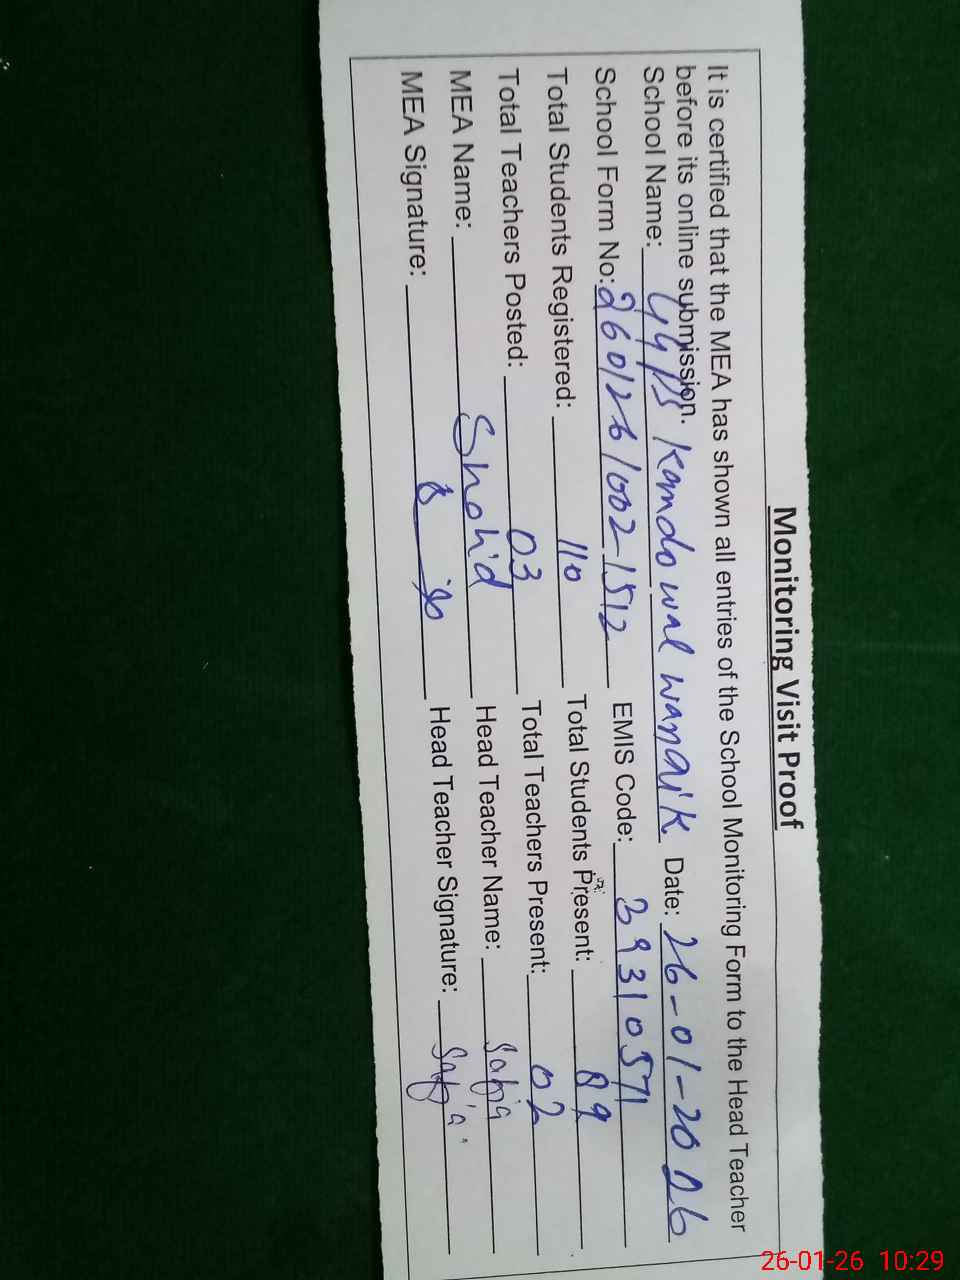 Monitoring Visit Proof
It is certified that the MEA has shown all entries of the School Monitoring Form to the Head Teacher
before its online submission.
School Name: GGPS Kamdo wal wanaik Date: 26-01-2026
School Form No: 2601261002-1512 EMIS Code: 39310571
Total Students Registered: 110 Total Students Present: 89
Total Teachers Posted: 03 Total Teachers Present: 02
MEA Name: Shahid Head Teacher Name: Safia
MEA Signature: Head Teacher Signature: Safia
26-01-26 10:29